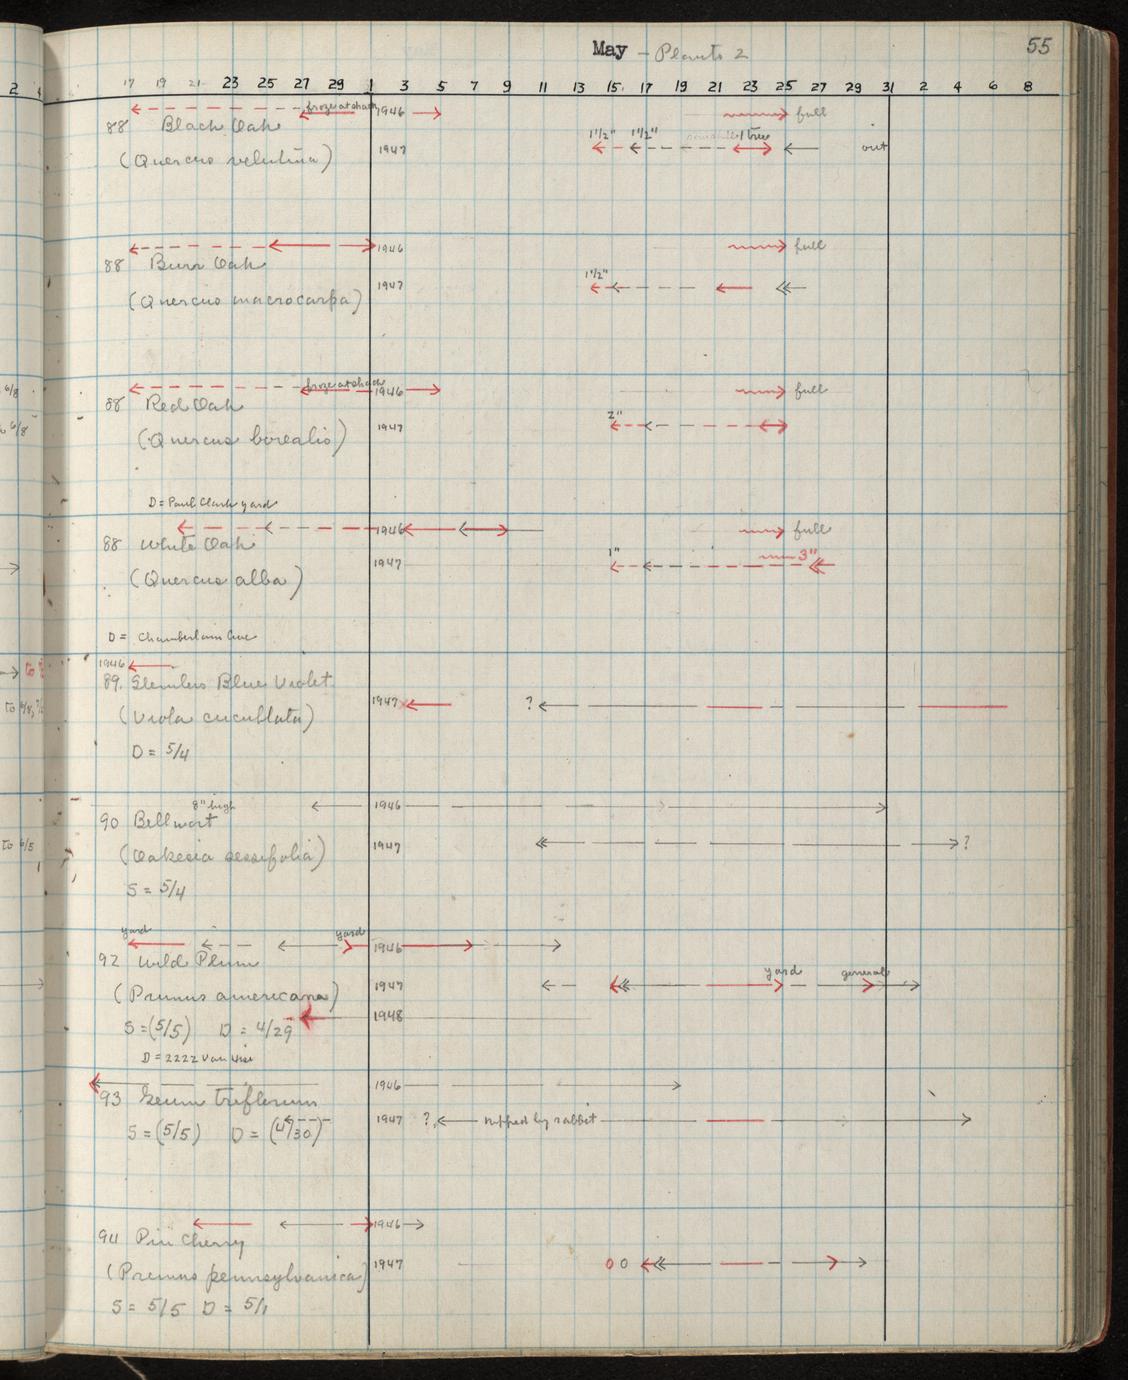 May - Plants 2
55
2 4 17 19 21 23 25 27 29 1 3 5 7 9 11 13 15 17 19 21 23 25 27 29 31 2 4 6 8
froze at shack 1946 full
88 Black Oak
1 1/2" 1 1/2" 1 tree
1947 out
(Quercus velutina)
1946 full
88 Burr Oak
1 1/2"
1947
(Quercus macrocarpa)
6/8
froze at shack 1946 full
88 Red Oak
2"
6/8 1947
(Quercus borealis)
D = Paul Clark yard
1946 full
88 White Oak
1" 3"
1947
(Quercus alba)
D = Chamberlain Ave
1946
89. Stemless Blue Violet
1947 ?
(Viola cucullata)
D = 5/4
8" high 1946
90 Bellwort
to 6/5 1947 ?
(Oakesia sessifolia)
S = 5/4
yard yard
1946
92 Wild Plum
yard general
1947
(Prunus americana)
1948
S = (5/5) D = 4/29
D = 2222 Van Hise
1946
93 Geum triflorum
1947 ? nipped by rabbit
S = (5/5) D = (4/30)
1946
94 Pin Cherry
1947 0 0
(Prunus pennsylvanica)
S = 5/5 D = 5/1